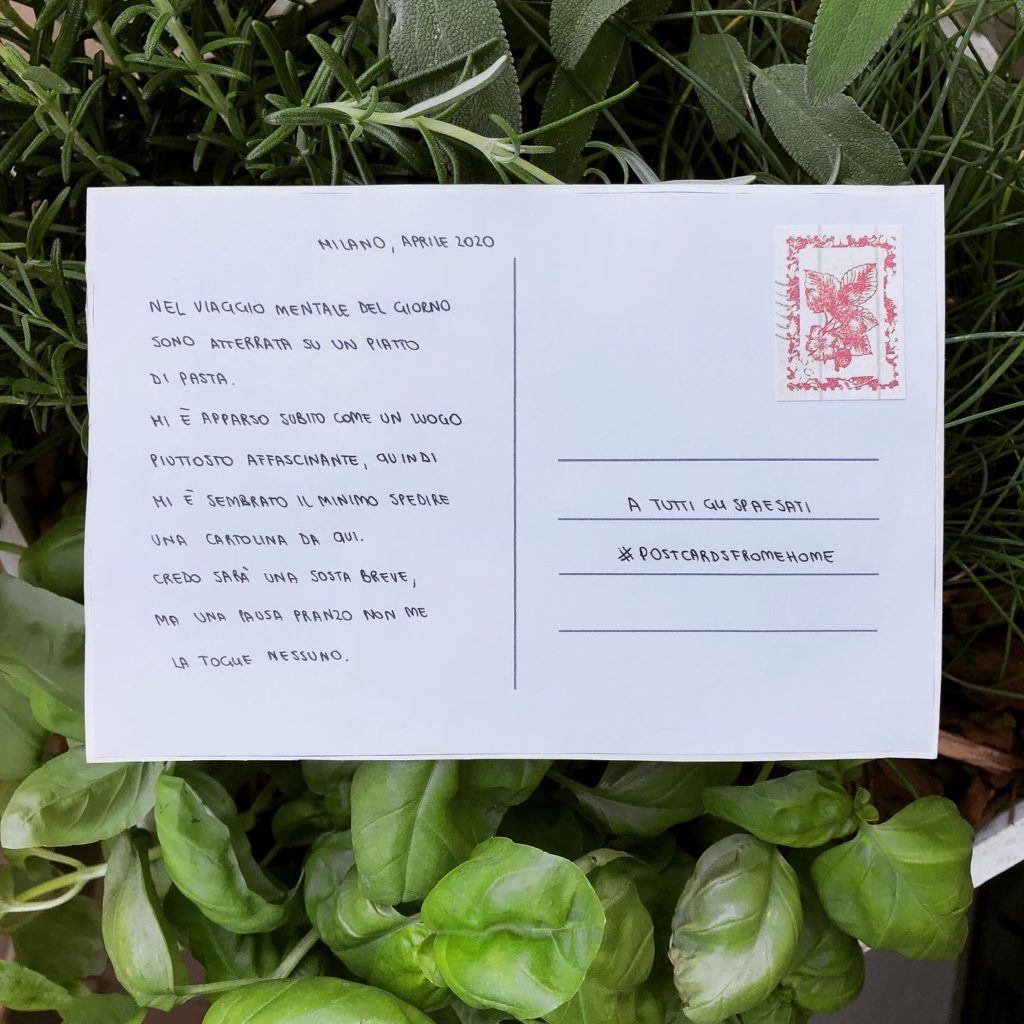 MILANO, APRILE 2020
NEL VIAGGIO MENTALE DEL GIORNO
SONO ATTERRATA SU UN PIATTO
DI PASTA.
MI È APPARSO SUBITO COME UN LUOGO
PIUTTOSTO AFFASCINANTE, QUINDI
MI È SEMBRATO IL MINIMO SPEDIRE
UNA CARTOLINA DA QUI.
CREDO SARÀ UNA SOSTA BREVE,
MA UNA PAUSA PRANZO NON ME
LA TOGLIE NESSUNO.
A TUTTI GLI SPAESATI
#POSTCARDSFROMEHOME